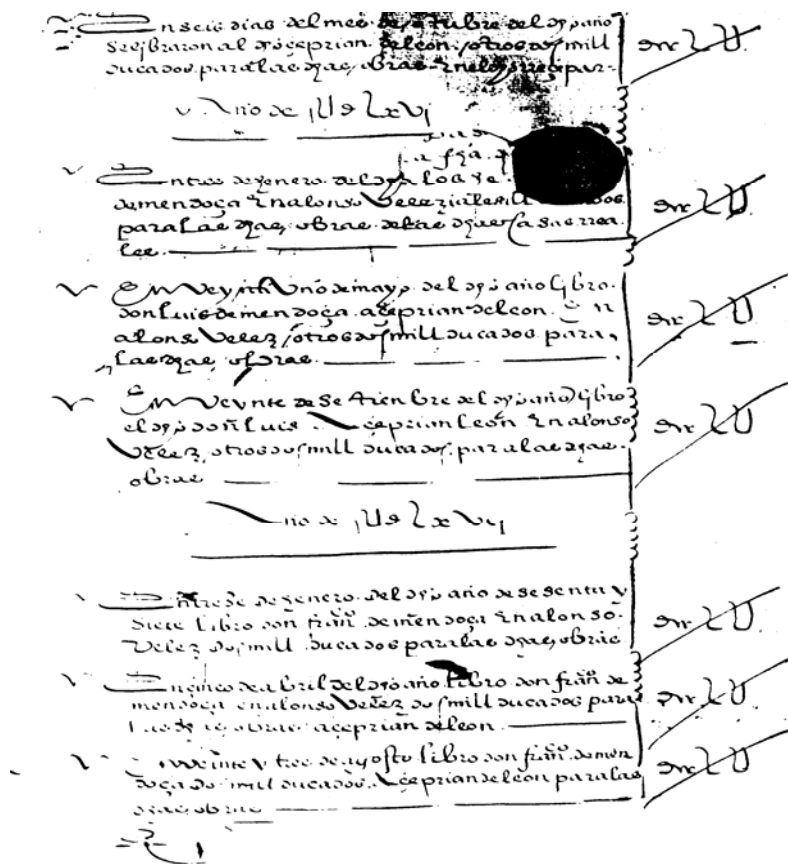 En seis dias del mes de otubre del dho año
se libraron al dho ceprian de leon otros dos mill
ducados para las dhas obras en el dho
Año de jUdLxvj
En tres de henero del dho
de mendoça en alonso Velez dos mill ducados
para las dhas obras de las dhas casas rrea
les
En Veynte Uno de mayo del dho año libro
don Luis de mendoça a ceprian de leon en
alonso Velez otros dos mill ducados para
las dhas obras
En Veynte de setienbre del dho año libro
el dho don Luis a ceprian leon en alonso
Velez otros dos mill ducados para las dhas
obras
Año de jUdLxvij
En treze de henero del dho año de sesenta y
siete libro don fran.co de mendoça en alonso
Velez dos mill ducados para las dhas obras
En cinco de abril del dho año libro don fran.co de
mendoça en alonso Velez dos mill ducados para
las dhas obras a ceprian de leon
En veinte y tres de agosto libro don fran.co de men
doça dos mill ducados a ceprian de leon para las
dhas obras